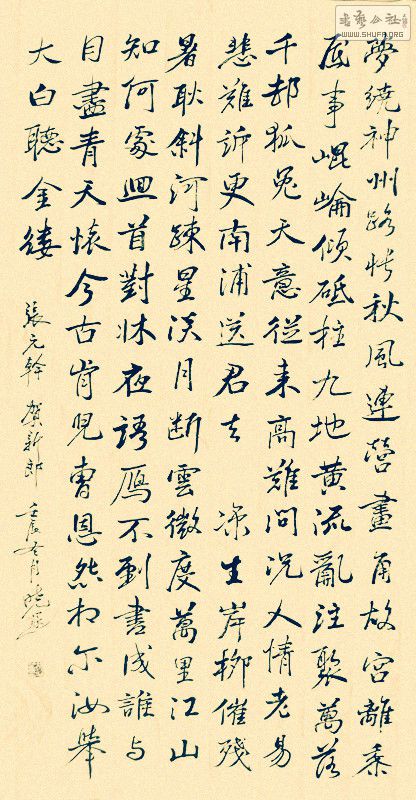 夢繞神州路悵秋風連營畫角故宮離黍
底事崐崘傾砥柱九地黃流亂注聚萬落
千邨狐兔天意從來高難問況人情老易
悲難訴更南浦送君去 涼生岸柳催殘
暑耿斜河疎星淡月斷雲微度萬里江山
知何處迴首對牀夜語鴈不到書成誰與
目盡青天懷今古肯兒曹恩怨相尔汝舉
大白聽金縷
張元幹 賀新郎 壬辰冬月
WWW.SHUFA.ORG